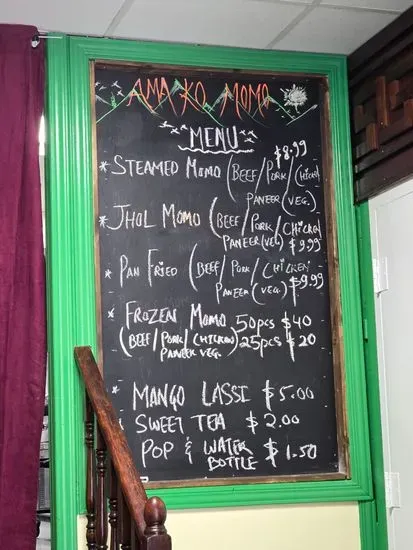 AMA KO MOMO
MENU
$8.99
* STEAMED MOMO (BEEF/PORK/(CHICK)
PANEER(VEG.)
* JHOL MOMO (BEEF/PORK/CHICKEN
PANEER(VEG) $9.99
* PAN FRIED (BEEF/PORK/CHICKEN
PANEER(VEG.) $9.99
* FROZEN MOMO 50pcs $40
(BEEF/PORK/CHICKEN) 25pcs $20
PANEER VEG.
* MANGO LASSI $5.00
SWEET TEA $2.00
POP & WATER
BOTTLE $1.50